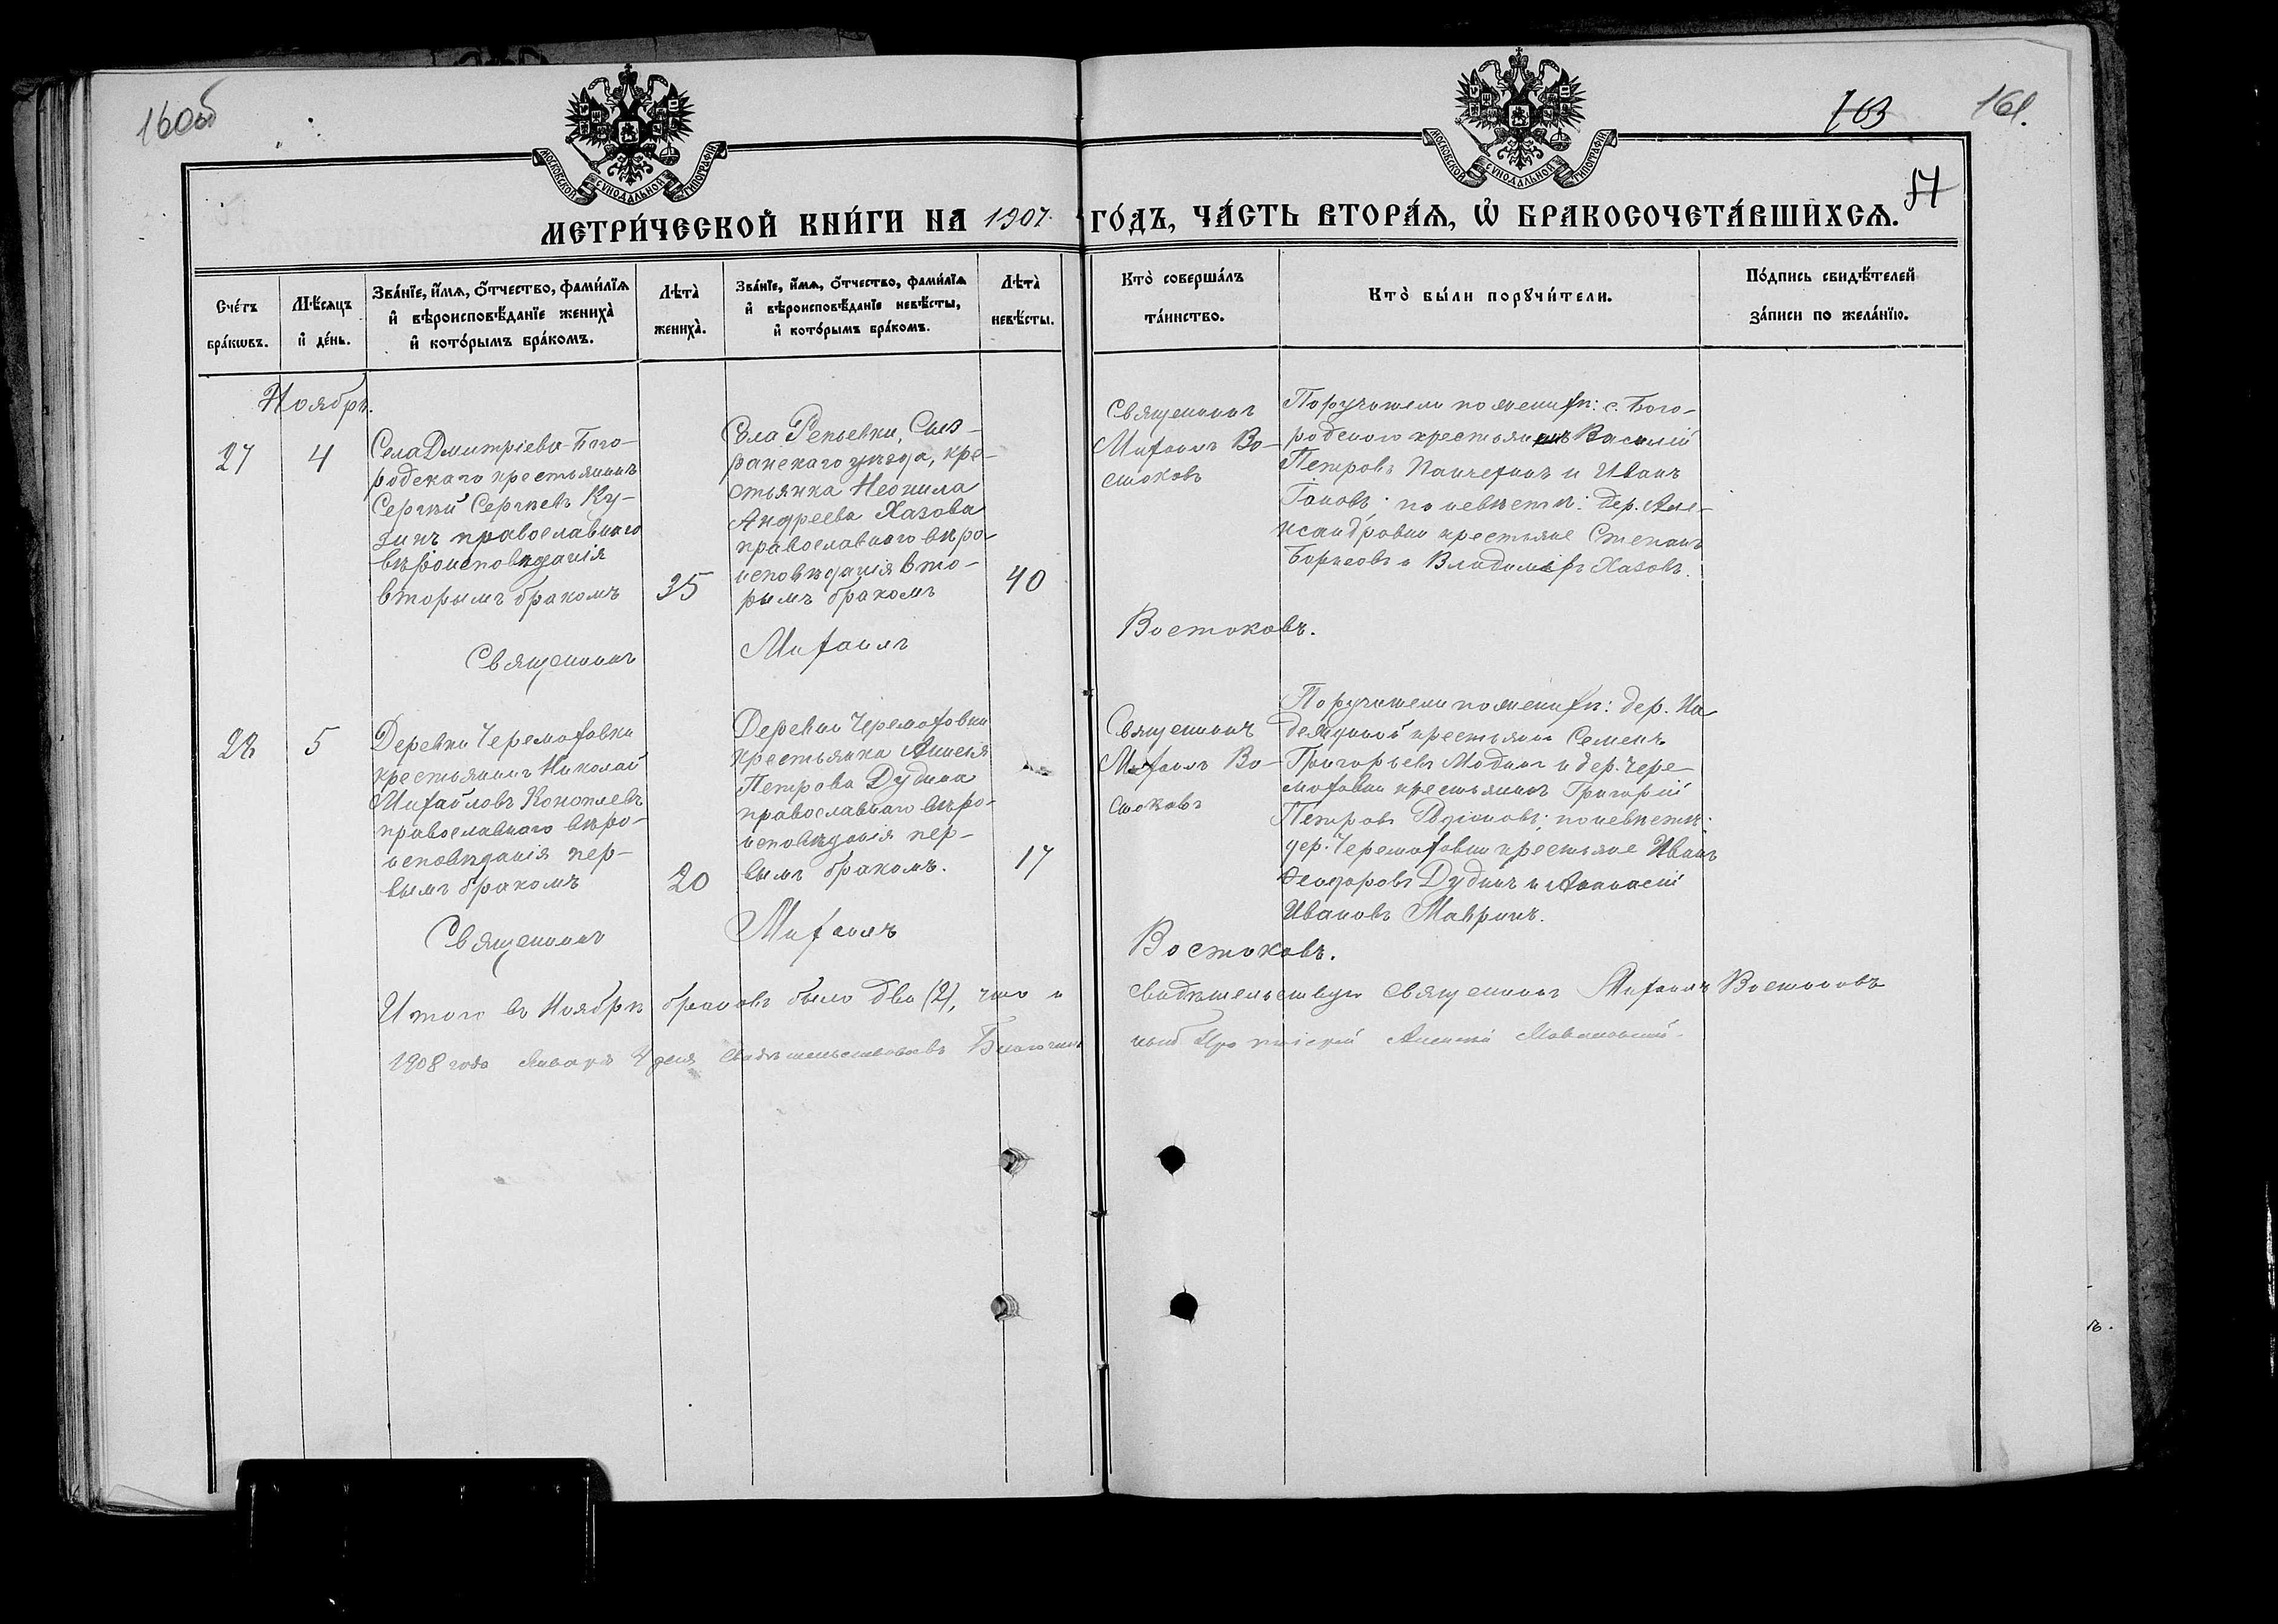 160об
163
161.
54
МОСКОВСКОЙ СѴНОДАЛЬНОЙ ТИПОГРАФІИ
МОСКОВСКОЙ СѴНОДАЛЬНОЙ ТИПОГРАФІИ
МЕТРИ́ЧЕСКОЙ КНИ́ГИ НА 1907. ГО́ДЪ, ЧА́СТЬ ВТОРА́Я, Ѿ БРАКОСОЧЕТА́ВШИХСЯ.
Сче́тъ
бра́кѡвъ.
Мѣ́сяцъ
и҆ де́нь.
Зва́нїе, и҆́мя, ѻ҆́тчество, фами́лїя
и҆ вѣроисповѣ́данїе жениха̀
и҆ кото́рымъ бра́комъ.
Лѣта̀
жениха̀.
Зва́нїе, и҆́мя, ѻ҆́тчество, фами́лїя
и҆ вѣроисповѣ́данїе невѣ́сты,
и҆ кото́рымъ бра́комъ.
Лѣта̀
невѣ́сты.
Кто̀ соверша́лъ
та́инство.
Кто̀ бы́ли порꙋчи́тели.
По́дпись свидѣ́телей
за́писи по жела́нїю.
Ноябрь.
27
4
Села Дмитріева-Бого-
родскаго крестьянинъ
Сергѣй Сергѣевъ Ку-
зинъ православнаго
вѣроисповѣданія
вторымъ бракомъ
35
Села Репьевки, Сыз-
ранскаго уѣзда, кре-
стьянка Неонила
Андреева Хазова
православнаго вѣро-
исповѣданія вто-
рымъ бракомъ
40
Священникъ
Михаилъ Во-
стоковъ
Поручители по женихѣ: с. Бого-
родскаго крестьяне Василій
Петровъ и Иванъ
по невѣстѣ: дер. Але-
ксандровки крестьяне Степанъ
Борисовъ и Владиміръ Хазовъ.
Священникъ Михаилъ Востоковъ.
28
5
Деревни Черемоховки
крестьянинъ Николай
Михайловъ Коноплевъ
православнаго вѣро-
исповѣданія пер-
вымъ бракомъ
20
Деревни Черемоховки
крестьянка Анисія
Петрова Дудина
православнаго вѣро-
исповѣданія пер-
вымъ бракомъ.
17
Священникъ
Михаилъ Во-
стоковъ
Поручители по женихѣ: дер. На-
деждиной крестьянинъ Семенъ
Григорьевъ Модинъ и дер. Чере-
моховки крестьянинъ Григорій
Петровъ по невѣстѣ:
дер. Черемоховки крестьяне Иванъ
Ѳеодоровъ Дудинъ и Аѳанасій
Ивановъ Мавринъ.
Священникъ Михаилъ Востоковъ.
Итого въ Ноябрѣ браковъ было два (2), что и свидѣтельствую Священникъ Михаилъ Востоковъ
1908 года Января 4 дня свидѣтельствовалъ Благочинный Алексій